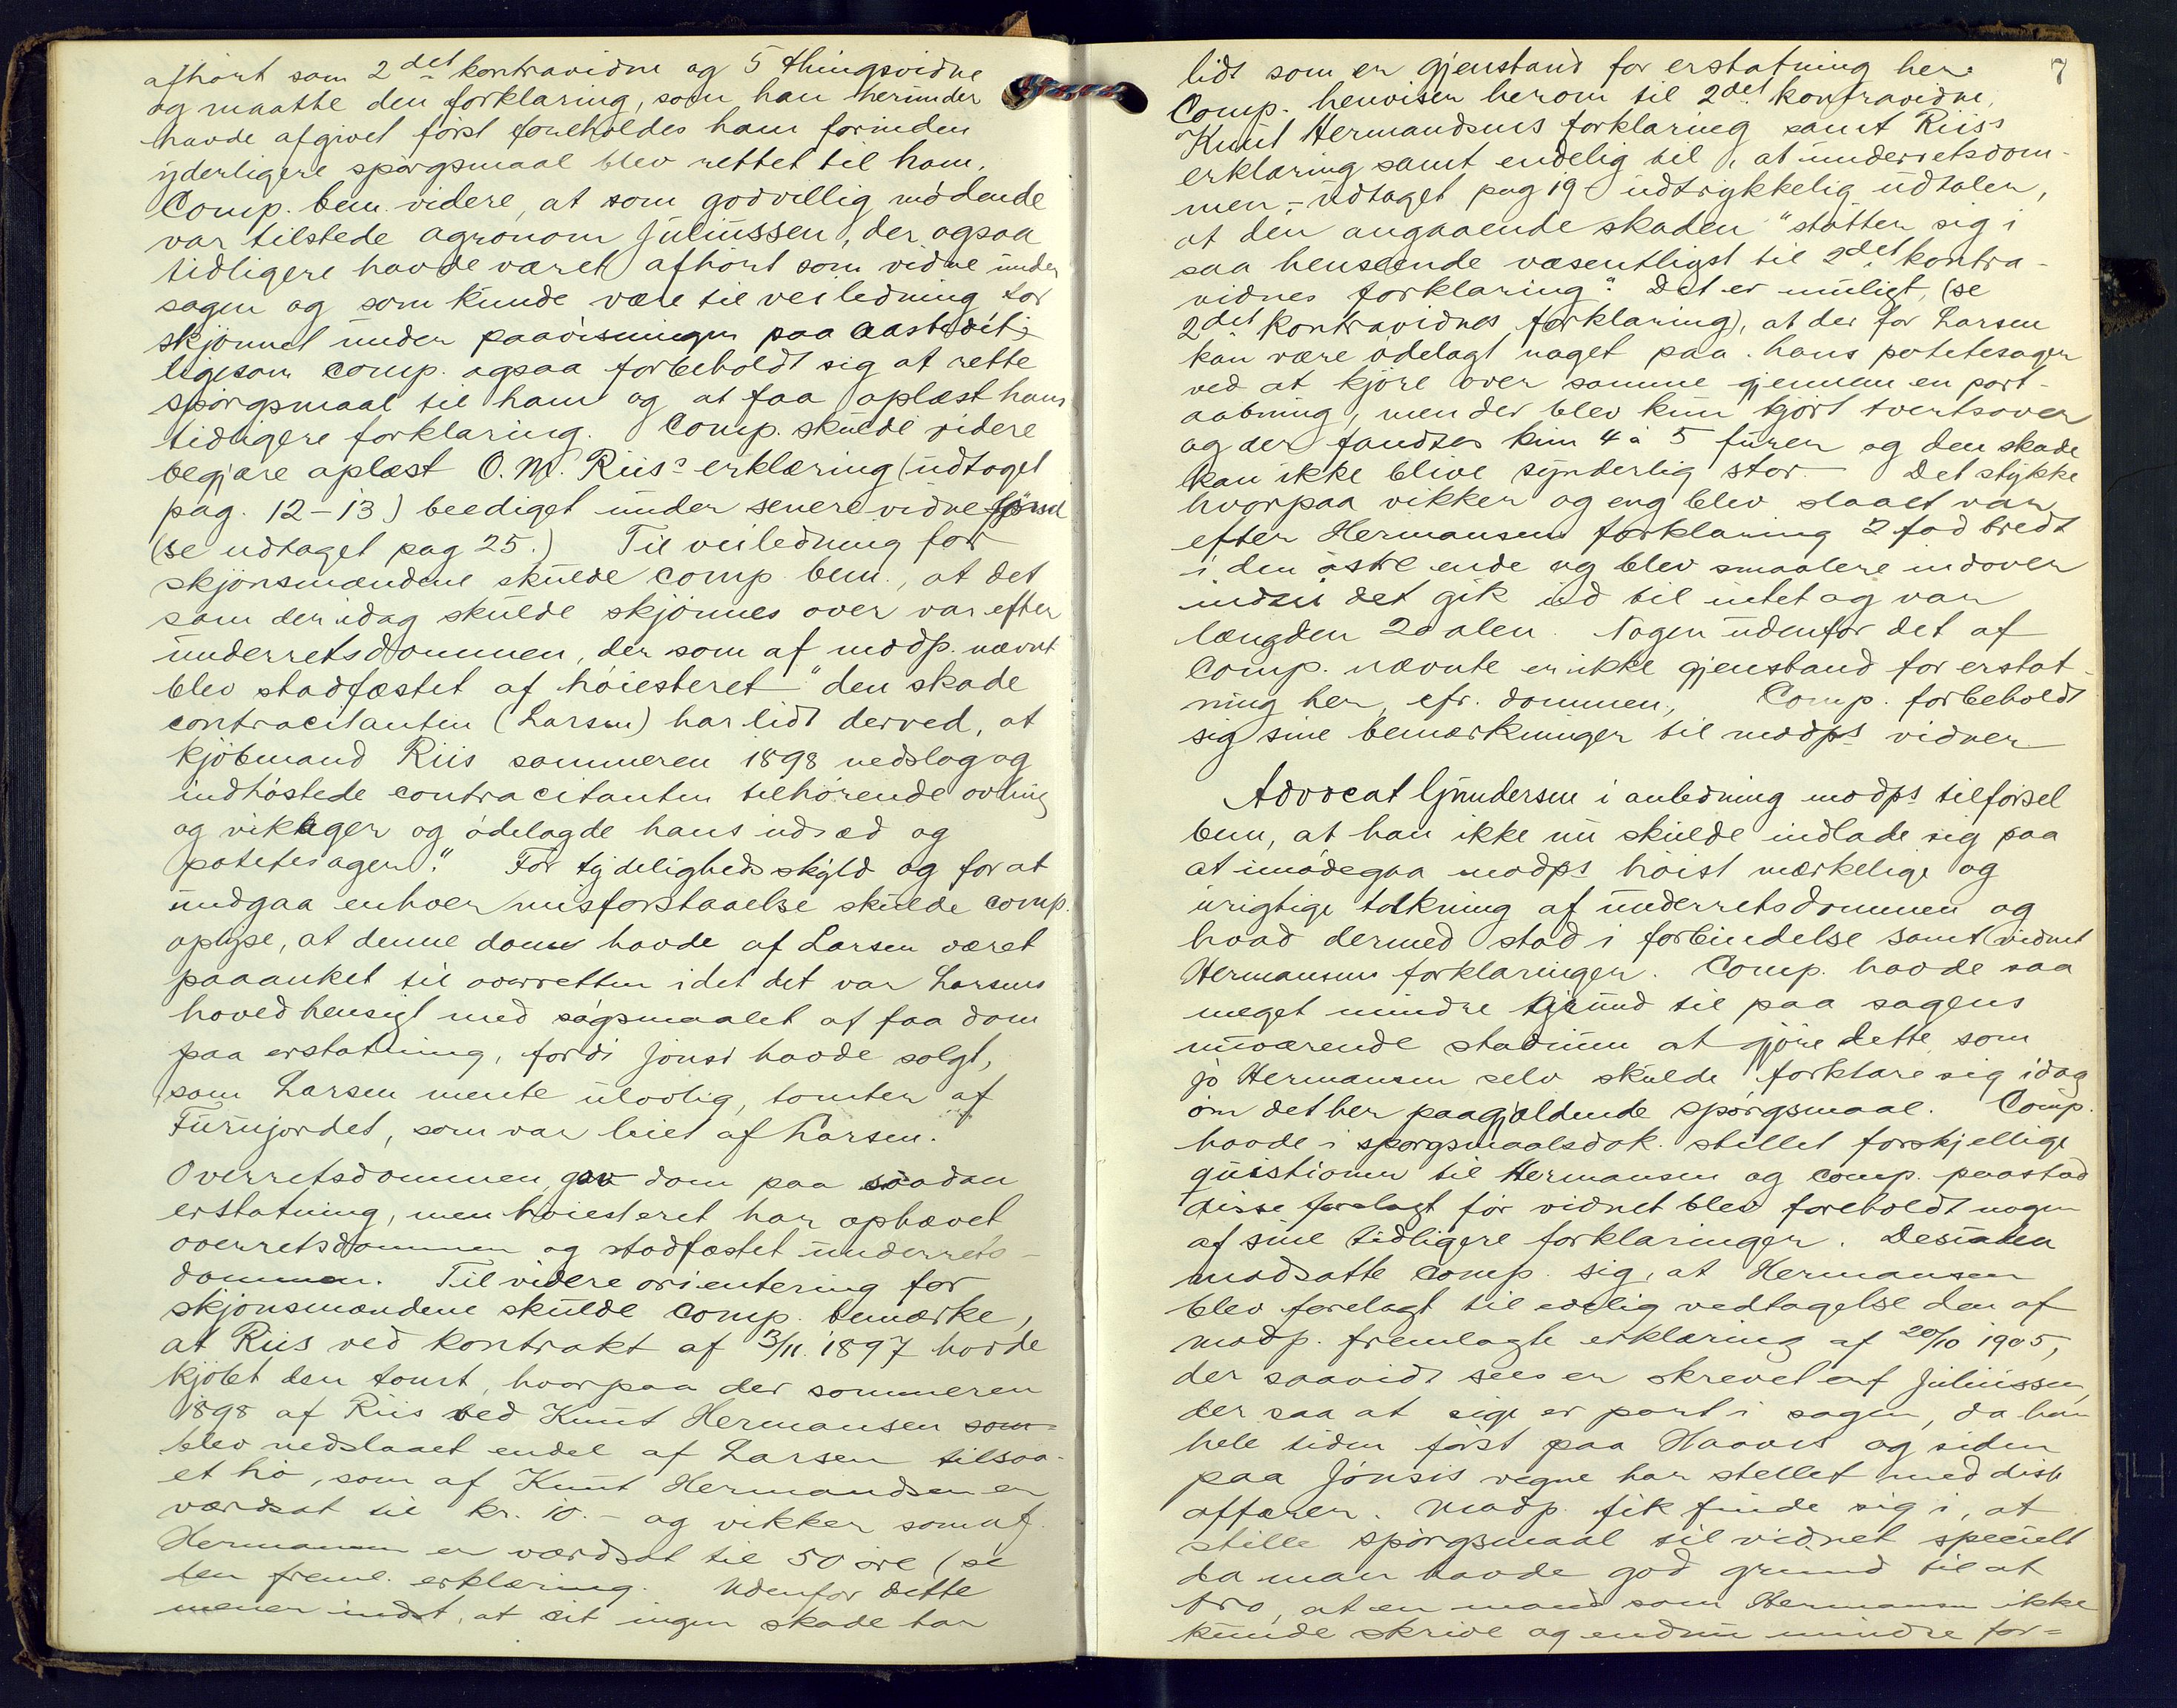 afhørt som 2det kontravidne og 5 thingsvidne
og maatte den forklaring, som han herunder
havde afgivet først foreholdes ham forinden
yderligere spørgsmaal blev rettet til ham.
Comp. bem. videre, at som godvillig mødende
var tilstede agronom Juliussen, der ogsaa
tidligere havde været afhørt som vidne under
sagen og som kunde være til veiledning for
skjønnet under paavisningen paa aastedet;
ligesom comp. ogsaa forbeholdt sig at rette
spørgsmaal til ham og at faa oplæst hans
tidligere forklaring. Comp. skulde videre
begjære oplæst O. M. Riis's erklæring (udtaget
pag. 12-13) beediget under senere vidneførsel
(se udtaget pag 25.) Til veiledning for
skjønsmændene skulde comp. bem., at det
som der idag skulde skjønnes over var efter
underretsdommen, der som af modp. nævnt
blev stadfæstet af høiesteret "den skade
contracitanten (Larsen) har lidt derved, at
kjøbmand Riis sommeren 1898 nedslog og
indhøstede contracitanten tilhørende avling
og vikager og ødelagde hans udsæd og
potetesager." For tydeligheds skyld og for at
undgaa enhver misforstaaelse skulde comp.
oplyse, at denne dom havde af Larsen været
paaanket til overretten idet det var Larsens
hovedhensigt med søgsmaalet at faa dom
paa erstatning, fordi Jønsi havde solgt,
som Larsen mente ulovlig, tomten af
Furujordet, som var leiet af Larsen.
Overretsdommen gav dom paa saadan
erstatning, men høiesteret har ophævet
overretsdommen og stadfæstet underrets-
dommen. Til videre orientering for
skjønsmændene skulde comp. bemærke,
at Riis ved kontrakt af 3/11 1897 havde
kjøbt den tomt, hvorpaa der sommeren
1898 af Riis ved Knut Hermansen som
blev nedslaaet endel af Larsen tilsaa-
et hø, som af Knut Hermandsen er
værdsat til kr. 10.- og vikker som af
Hermansen er værdsat til 50 øre (se
den freml. erklæring. Udenfor dette
mener indst, at sit ingen skade har
7
lidt som er gjenstand for erstatning her.
Comp. henviser herom til 2det kontravidne,
Knut Hermandsens forklaring samt Riis's
erklæring samt endelig til, at underretsdom-
men,- udtaget pag 19 udtrykkelig udtaler,
at den angaaende skaden "støtter sig i
saa henseende væsentligst til 2det kontra-
vidnes forklaring." Det er muligt, (se
2det kontravidnes forklaring), at der for Larsen
kan være ødelagt noget paa hans potetesager
ved at kjøre over samme gjennem en port-
aabning, men der blev kun kjørt tvertsover
og der fandtes kun 4 à 5 furer og den skade
kan ikke blive synderlig stor. Det stykke
hvorpaa vikker og eng blev slaaet var
efter Hermansens forklaring 2 fod bredt
i den østre ende og blev smalere indover
indtil det gik ud til intet og var
længden 20 alen. Nogen udenfor det af
Comp. nævnte er ikke gjenstand for erstat-
ning her, cfr. dommen, Comp. forbeholdt
sig sine bemærkninger til modps vidner
Advocat Gundersen i anledning modps tilførsel
bem, at han ikke nu skulde indlade sig paa
at imødegaa modps høist mærkelige og
urigtige tolkning af underretsdommen og
hvad dermed stod i forbindelse samt vidnet
Hermansens forklaringer. Comp. havde saa
meget mindre grund til paa sagens
nuværende stadium at gjøre dette som
jo Hermansen selv skulde forklare sig idag
om det her paagjældende spørgsmaal. Comp.
havde i spørgsmaalsdok. stillet forskjellige
quistioner til Hermansen og comp. paastod
disse forelagt før vidnet blev foreholdt nogen
af sine tidligere forklaringer. Desuden
modsatte comp. sig, at Hermansen
blev forelagt til edelig vedtagelse den af
modp. fremlagte erklæring af 20/10 1905,
der saavidt sees er skrevet af Juliussen,
der saa at sige er part i sagen, da han
hele tiden først paa Haaves og siden
paa Jønsis vegne har stellet med diss
affærer. Modp. fik finde sig i, at
stille spørgsmaal til vidnet specielt
da man havde god grund til at
tro, at en mand som Hermansen ikke
kunde skrive og endnu mindre for=